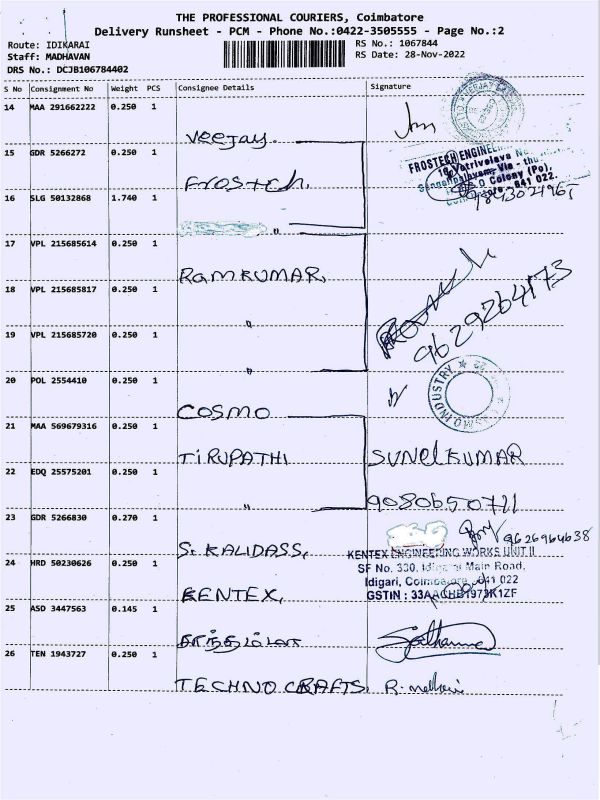 THE PROFESSIONAL COURIERS, Coimbatore
Delivery Runsheet - PCM - Phone No.:0422-3505555 - Page No.:2
Route: IDIKARAI
Staff: MADHAVAN
DRS No.: DCJB106784402
RS No.: 1067844
RS Date: 28-Nov-2022
S No Consignment No Weight PCS Consignee Details Signature
14 MAA 291662222 0.250 1
Veejay.
15 GDR 5266272 0.250 1
Frostech,
FROSTECH ENGINEE
641 022.
16 SLG 50132868 1.740 1
"
17 VPL 215685614 0.250 1
RAMKUMAR,
18 VPL 215685817 0.250 1
"
9629264173
19 VPL 215685720 0.250 1
"
20 POL 2554410 0.250 1
COSMO
21 MAA 569679316 0.250 1
TIRUPATHI SUNelKUMAR
22 EDQ 25575201 0.250 1
" 9080650711
23 GDR 5266830 0.270 1
9626964638
S. KALIDASS,
KENTEX ENGINEERING WORKS UNIT II
24 HRD 50230626 0.250 1
SF No. 330, Idigarai Main Road,
Idigari, Coimbatore - 641 022
KENTEX,
GSTIN : 33AACHB1973K1ZF
25 ASD 3447563 0.145 1
26 TEN 1943727 0.250 1
TECHNO CRAFTS,